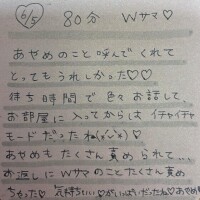 6/5 80分 Wサマ♡
あやめのこと呼んでくれて
とってもうれしかった♡♡
待ち時間で色々お話して、
お部屋に入ってからは イチャイチャ
モードだったね(>_<*)♡
あやめもたくさん責められて…
お返しにWサマのことたくさん責め
ちゃった♡ 気持ちいい♡がいっぱいだったね♡あやめ